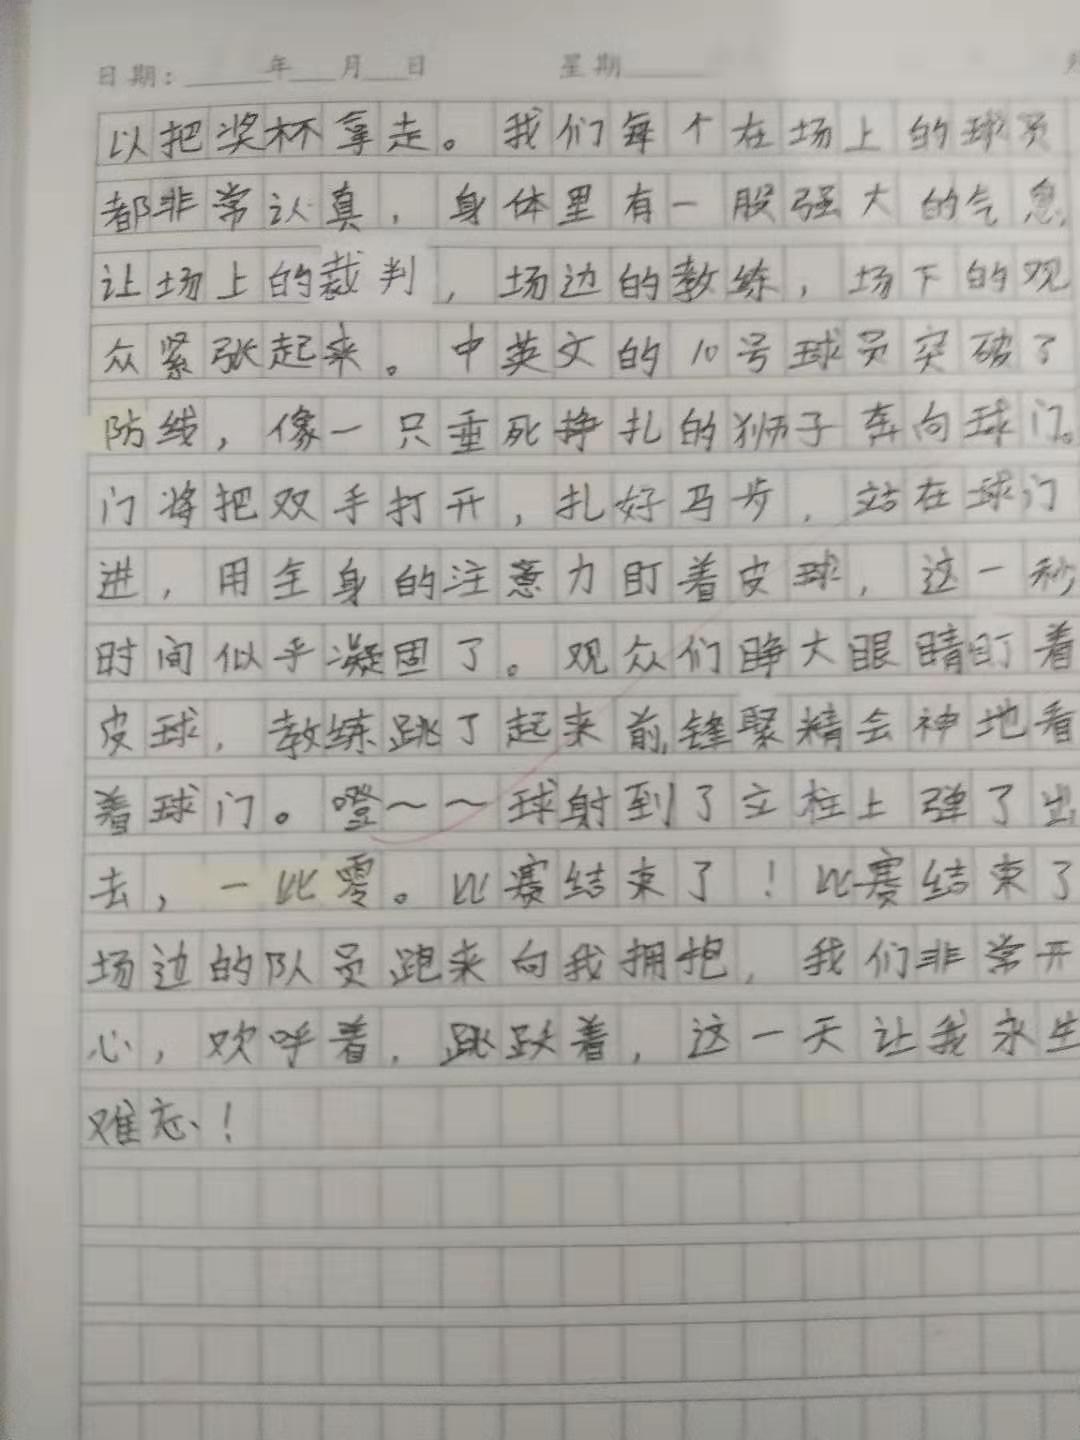 日期:______年___月___日 星期_____
以把奖杯拿走。我们每个在场上的球员
都非常认真，身体里有一股强大的气息，
让场上的裁判，场边的教练，场下的观
众紧张起来。中英文的10号球员突破了
防线，像一只垂死挣扎的狮子奔向球门。
门将把双手打开，扎好马步，站在球门
进，用全身的注意力盯着皮球，这一秒
时间似乎凝固了。观众们睁大眼睛盯着
皮球，教练跳了起来前，锋聚精会神地看
着球门。噔~~球射到了立柱上弹了出
去，一比零。比赛结束了！比赛结束了
场边的队员跑来向我拥抱，我们非常开
心，欢呼着，跳跃着，这一天让我永生
难忘！